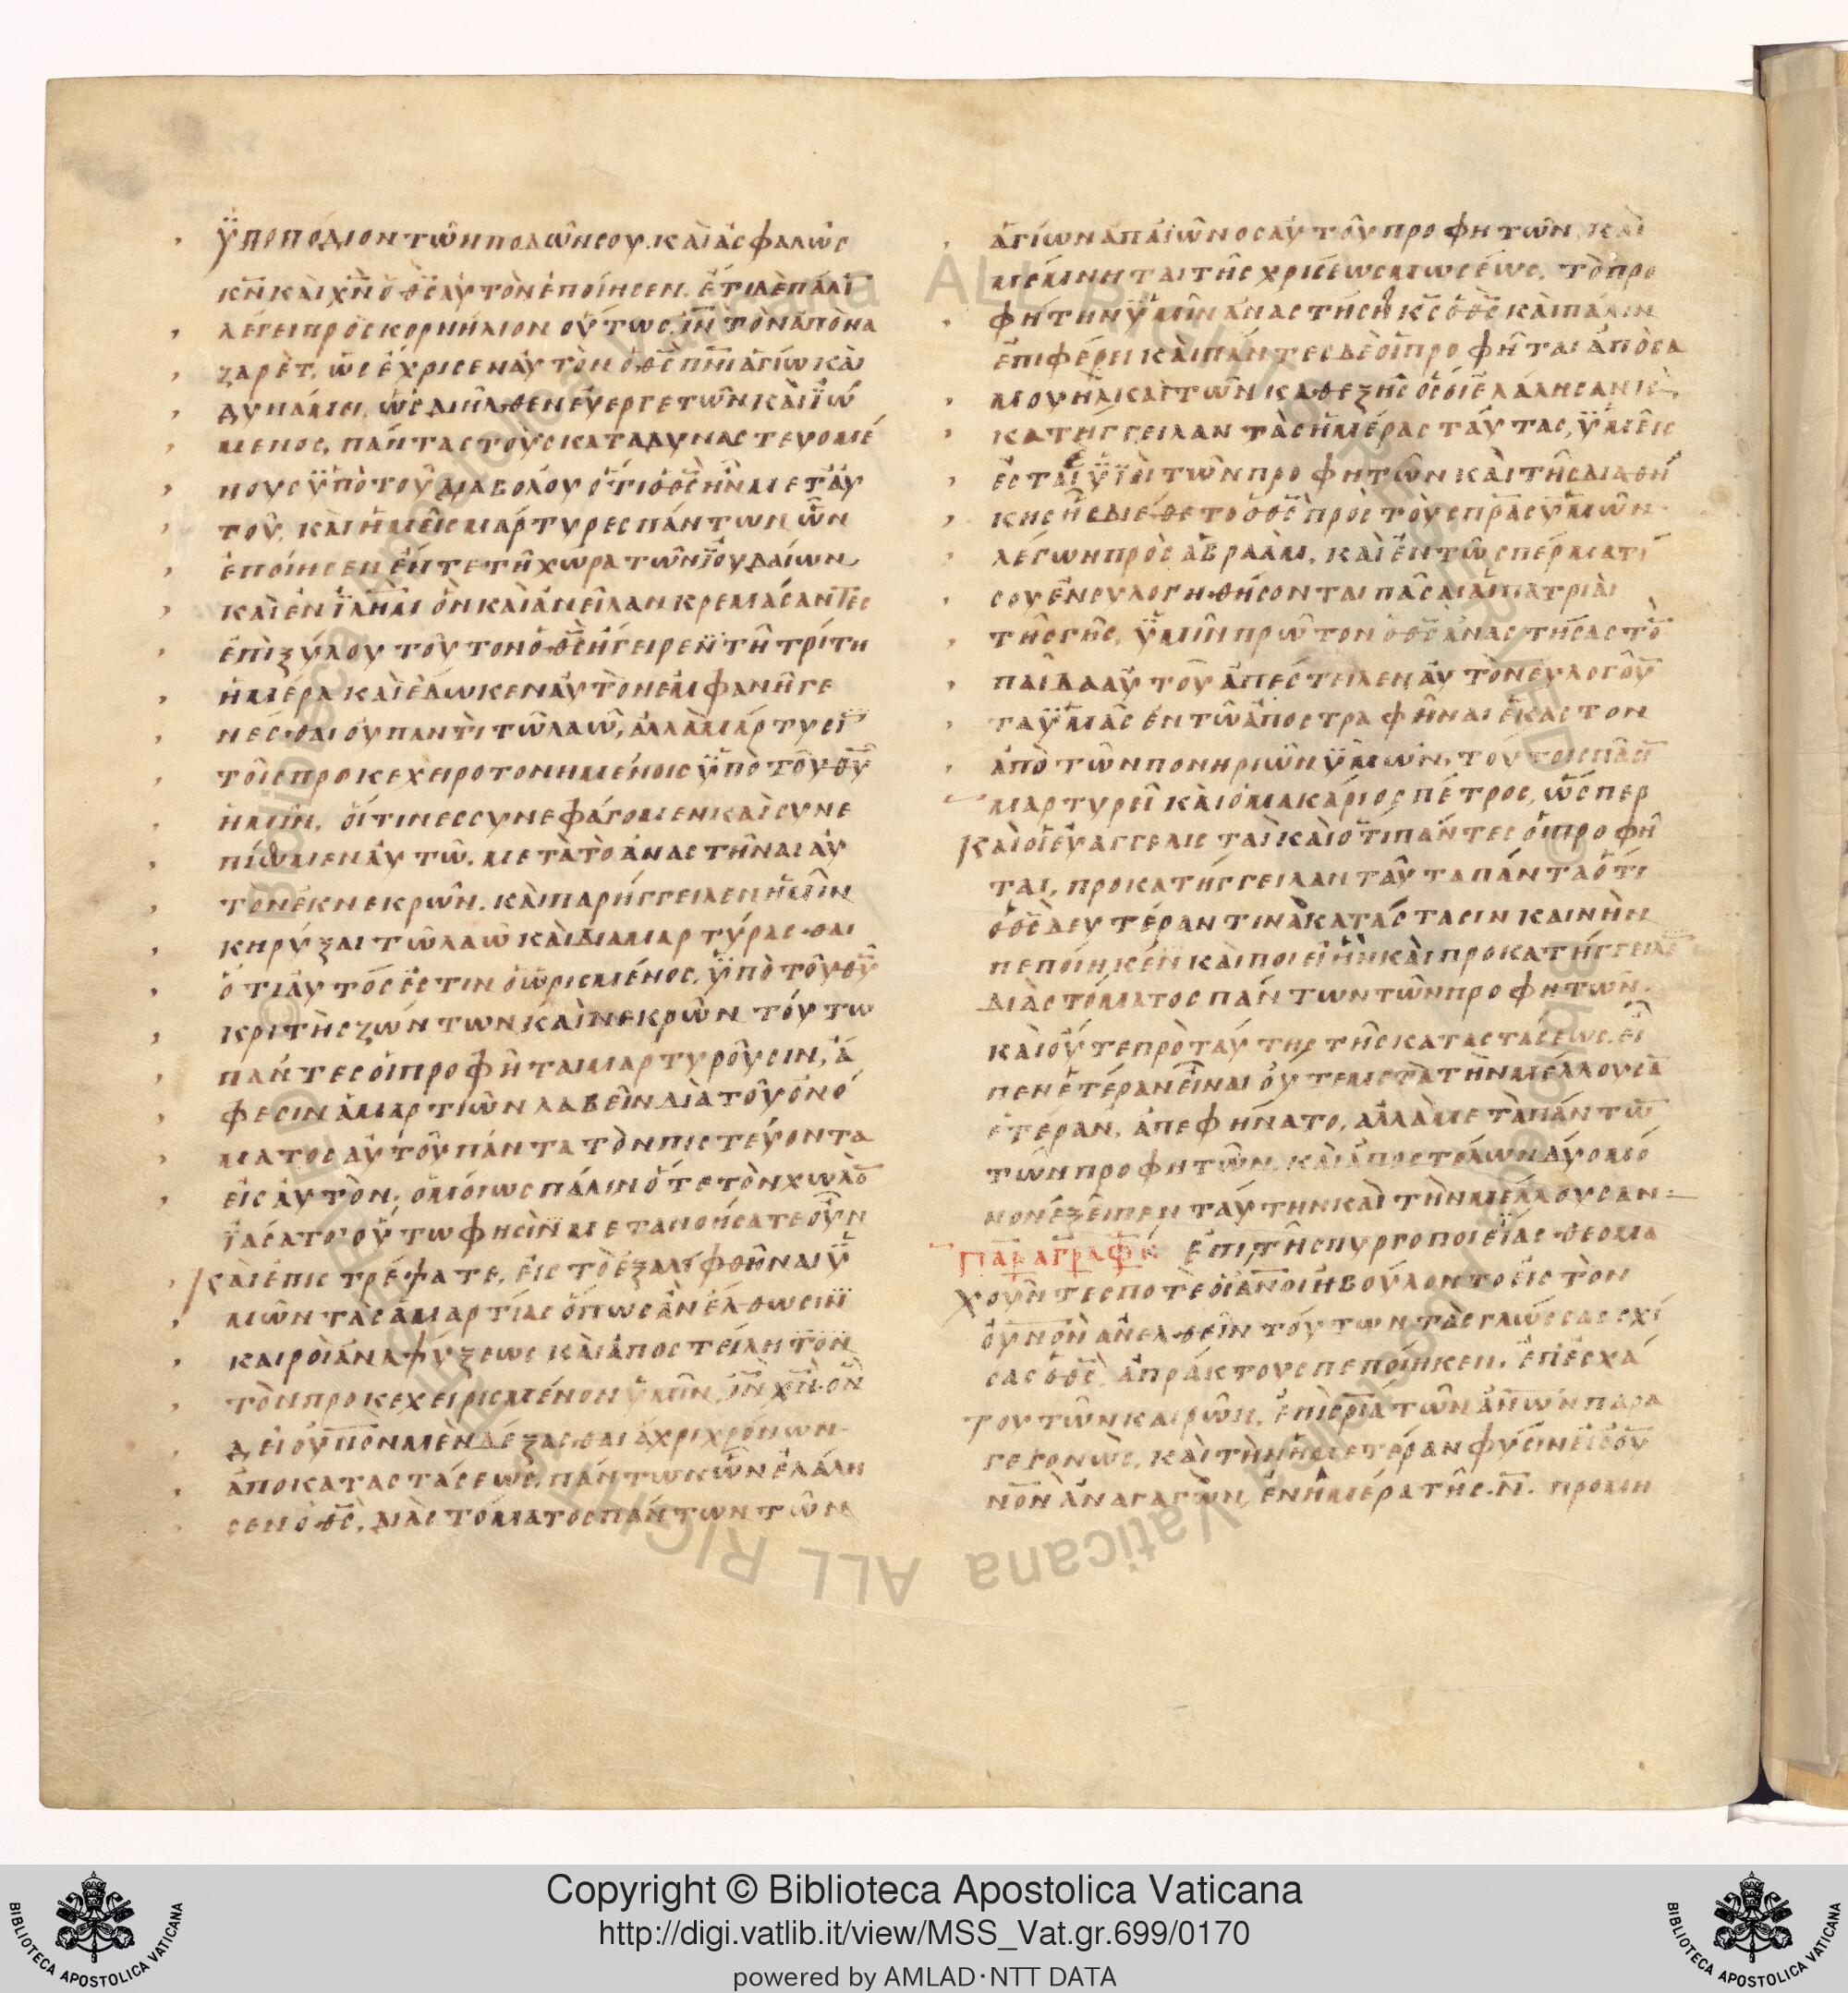 ὑποπόδιον τῶν ποδῶν σου. καὶ ἀσφαλῶς
κ̅ν̅ καὶ χ̅ν̅ ὁ θ̅ς̅ αὐτὸν ἐποίησεν. ἔτι δὲ πάλι̅
λέγει πρὸς κορνήλιον οὕτως, ι̅ν̅ τὸν ἀπὸ να
ζαρὲτ, ὡς ἔχρισεν αὐτὸν ὁ θ̅ς̅ π̅ν̅ι̅ ἁγίω καὶ
δυνάμει, ὡς διῆλθεν εὐεργετῶν καὶ ϊώ
μενος, πάντας τοὺς καταδυναστευομέ
νους ὑπὸ τοῦ διαβόλου ὅτι ὁ θ̅ς̅ ἦν μετ αὐ
τοῦ, καὶ ἡμεῖς μάρτυρες πάντων ὧν
ἐποίησεν ἔν τε τῆ χώρα τῶν ϊουδαίων
καὶ ἐν ϊ̅λ̅η̅μ̅ ὃν καὶ ἀνεῖλαν κρεμάσαντες
ἐπὶ ξύλου τοῦτον ὁ θ̅ς̅ ἤγειρεν τῆ τρίτη
ἡμέρα καὶ ἔδωκεν αὐτὸν ἐμφανῆ γε
νέσθαι οὐ παντὶ τῶ λαῶ, ἀλλὰ μάρτυσι̅
τοῖς προκεχειροτονημένοις ὑπὸ τοῦ θ̅υ̅
ἡμῖν, οἵτινες συνεφάγομεν καὶ συνε
πίομεν αὐτῶ, μετὰ τὸ ἀναστῆναι αὐ
τὸν ἐκ νεκρῶν. καὶ παρήγγειλεν ἡμῖν
κηρύξαι τῶ λαῶ καὶ διαμαρτύρασθαι
ὅτι αὐτός ἐστιν ὁ ὡρισμένος, ὑπὸ τοῦ θ̅υ̅
κριτὴς ζώντων καὶ νεκρῶν τούτω
πάντες οἱ προφῆται μαρτυροῦσιν, ἄ
φεσιν ἁμαρτιῶν λαβεῖν διὰ τοῦ ὀνό
ματος αὐτοῦ πάντα τὸν πιστεύοντα
εἰς αὐτὸν. ὁμοίως πάλιν ὅτε τὸν χωλὸ̅
ϊάσατο οὕτω φησὶν μετανοήσατε οὖν
καὶ ἐπιστρέψατε, εἰς τὸ ἐξαλιφθῆναι ὑ
μῶν τὰς ἁμαρτίας ὅπως ἂν ἔλθωσιν
καιροὶ ἀναψύξεως καὶ ἀποστείλη τὸν
τὸν προκεχειρισμένον ὑμῖν, ι̅ν̅ χ̅ν̅. ὃν
δεῖ ο̅υ̅ν̅ο̅ν̅ μὲν δέξασθαι ἄχρι χρόνων
ἀποκαταστάσεως, πάντων ὧν ἐλάλη
σεν ὁ θ̅ς̅, διὰ στόματος πάντων τῶν
ἁγίων ἀπ αἰῶνος αὐτοῦ προφητῶν. καὶ
μέμνηται τῆς χρήσεως μωσέως, τὸ προ
φήτην ὑμῖν ἀναστήσει κ̅ς̅ ὁ θ̅ς̅ καὶ πάλιν
ἐπιφέρει καὶ πάντες δὲ οἱ προφῆται ἀπὸ σα
μουὴλ καὶ τῶν καθεξῆς ὅσοι ἐλάλησαν καὶ
κατήγγειλαν τὰς ἡμέρας ταύτας, ὑμεῖς
ἐσται ὑϊοὶ τῶν προφητῶν καὶ τῆς διαθή
κης ἧς διέθετο ὁ θ̅ς̅ πρὸς τοὺς π̅ρ̅α̅ς̅ ὑμῶν
λέγων πρὸς ἀβραὰμ, καὶ ἐν τῶ σπέρματί
σου ἐνευλογηθήσονται πᾶσαι αἱ πατριαὶ
τῆς γῆς, ὑμῖν πρῶτον ὁ θ̅ς̅ ἀναστήσας τὸ̅
παῖδα αὐτοῦ ἀπέστειλεν αὐτὸν εὐλογοῦ̅
τα ὑμᾶς ἐν τῶ ἀποστραφῆναι ἕκαστον
ἀπὸ τῶν πονηριῶν ὑμῶν, τούτοις πᾶσι̅
μαρτυρεῖ καὶ ὁ μακάριος πέτρος, ὥσπερ
καὶ οἱ εὐαγγελισταὶ καὶ ὅτι πάντες οἱ προφῆ
ται, προκατήγγειλαν ταῦτα πάντα ὅτι
ὁ θ̅ς̅ δευτέραν τινὰ κατάστασιν καινὴν
πεποίηκεν καὶ ποιεῖ ἣν καὶ προκατήγγειλε̅
διὰ στόματος πάντων τῶν προφητῶν.
καὶ οὔτε πρὸ ταύτης τῆς καταστάσεως, εἶ
πεν ἑτέραν εἶναι οὔτε μετὰ τὴν μέλλουσα̅
ἑτέραν, ἀπεφήνατο, ἀλλὰ μετὰ πάντω̅
τῶν προφητῶν, καὶ ἀποστόλων δύο μό
νον ἐξεῖπεν ταύτην καὶ τὴν μέλλουσαν
παραγραφὴ ἐπὶ τῆς πυργοποιείας θεομα
χοῦντές ποτε οἱ α̅ν̅ο̅ι̅ ἠβούλοντο εἰς τὸν
ο̅υ̅ν̅ο̅ν̅ ἀνελθεῖν τούτων τὰς γλώσσας σχί
σας ὁ θ̅ς̅, ἀπράκτους πεποίηκεν. ἐπ ἐσχά
του τῶν καιρῶν, ἐπὶ σ̅ρ̅ι̅α̅ τῶν α̅ν̅ω̅ν̅ παρα
γεγονὼς, καὶ τὴν ἡμετέραν φύσιν εἰς ο̅υ̅
ν̅ο̅ν̅ ἀναγαγὼν, ἐν ἡμέρα τῆς .ν̅. προμη
Copyright © Biblioteca Apostolica Vaticana
http://digi.vatlib.it/view/MSS_Vat.gr.699/0170
powered by AMLAD·NTT DATA
BIBLIOTECA APOSTOLICA VATICANA
BIBLIOTECA APOSTOLICA VATICANA